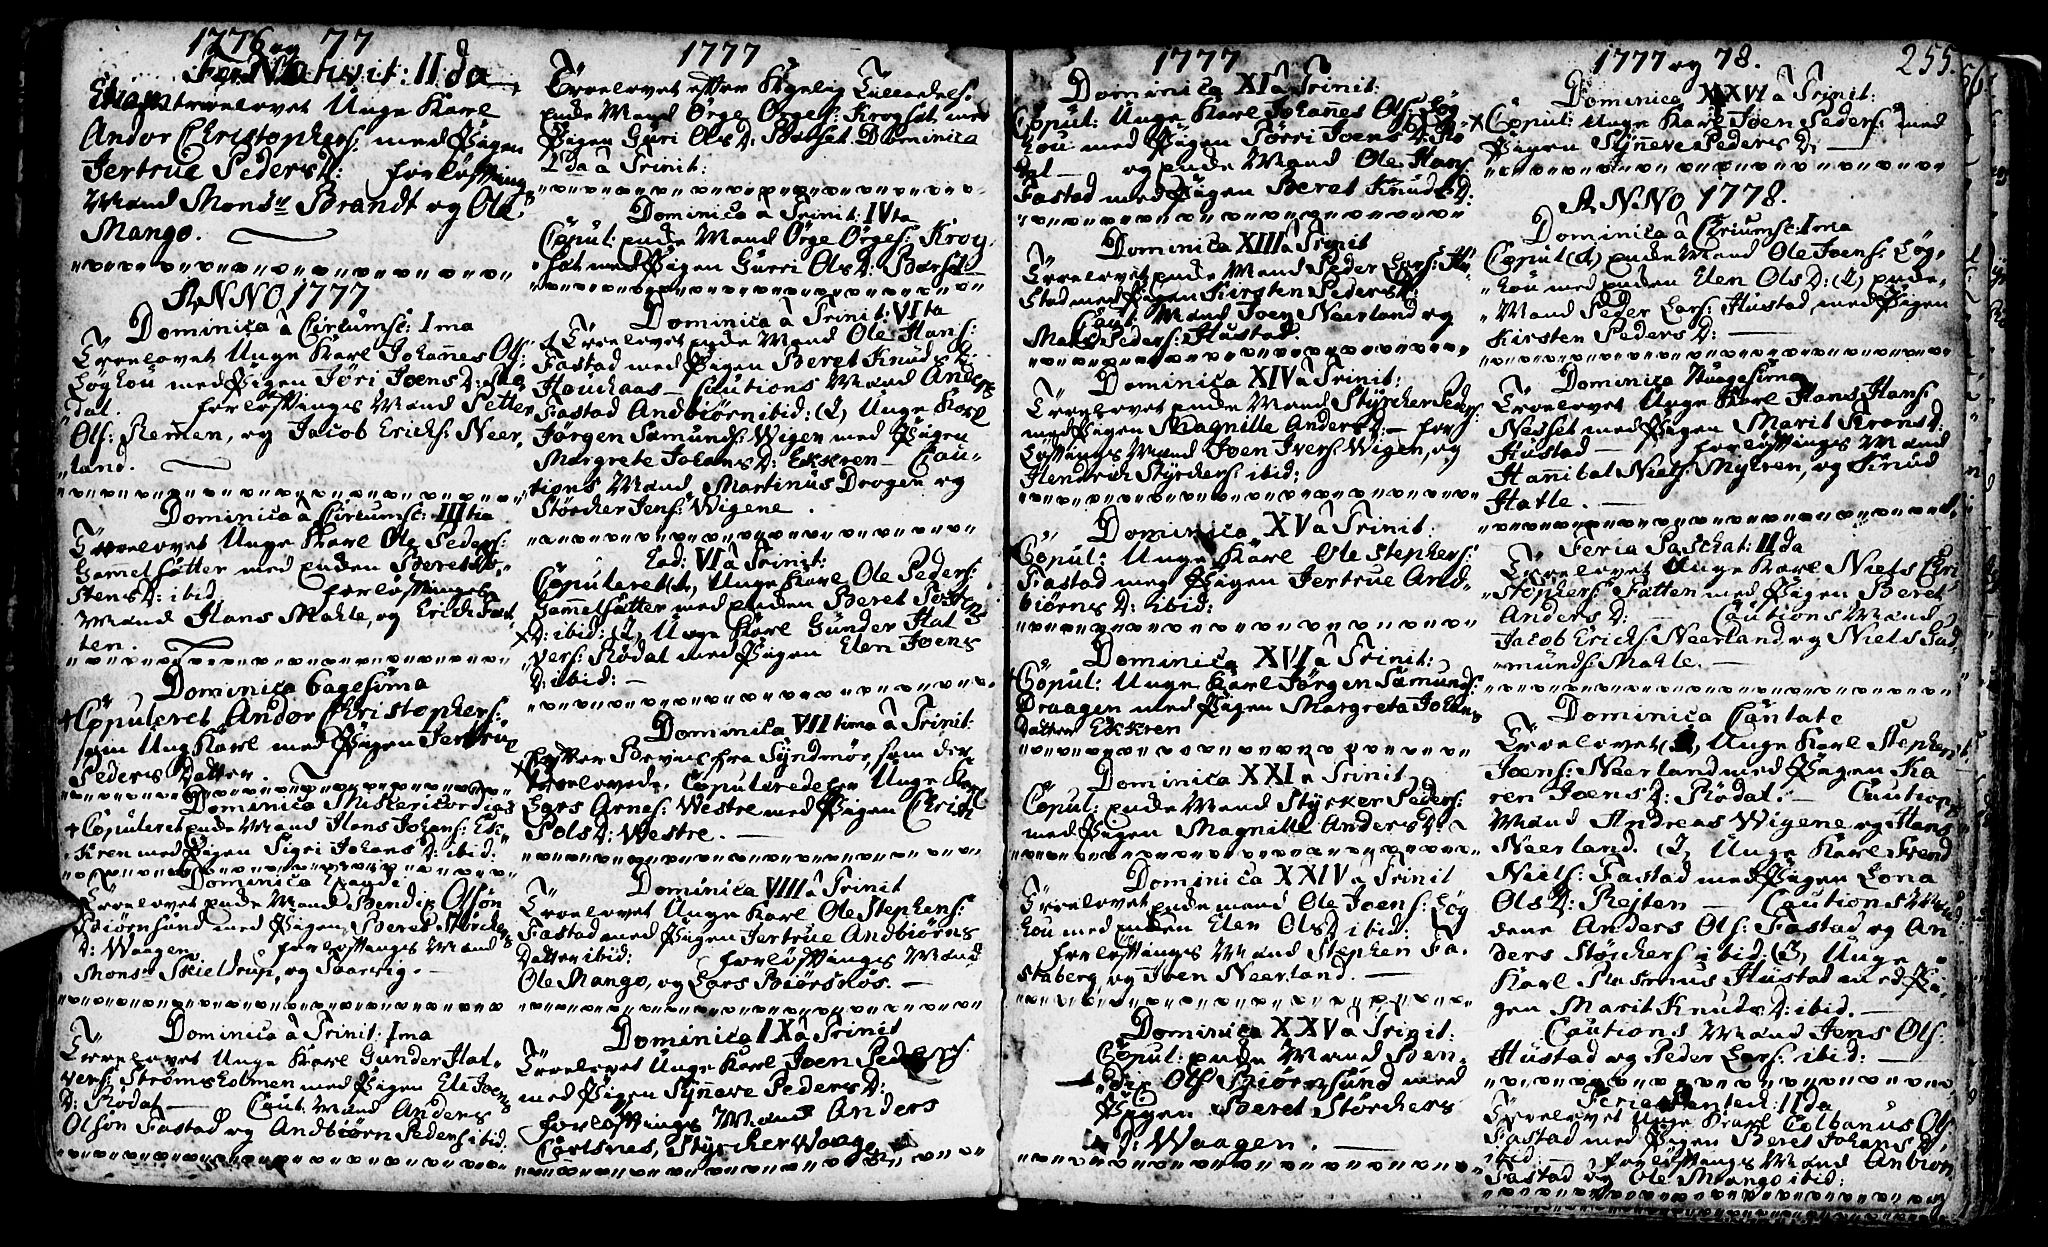 1776 og 77
Fer: Nativit: II da
Trovelovet Unge Karl
Andor Christophers: med Pigen
Jertrue PedersD: forløftnings
Mænd Monsr Brandt og Ole
Mango.
ANNO 1777
Dominica à Circumsc: Ima
Trovelovet Unge Karl Johañes Ols:
Høghou med Pigen Jøri JoensD: Rø
dal. forløftnings Mænd Petter
Ols: Remen, og Jacob Ericks: Neer,
land.
Dominica à Circumsc: III tia
Trovelovet Unge Karl Ole Peders:
Gam̃elsætter med Enken Beret
stensD: ibid: forløftnings
Mænd Hans Mahle, og Erich Fat
ten.
Dominica 6agesima
Copuleret Andor Christophers:
som Ung Karl med Pigen Jertrue
Peders Datter.
Dominica Misericordias
Copuleret Enke Mand Hans Johans: Ek
kren med Pigen Sigri Johans D: ibid:
Dominica
Trovelovet Enke Mand Bendix Olsøn
Biørnsund med Pigen Beret Størckers
D: Waagen. forløftnings Mænd
Mons: Skieldrup, og
Dominica à Trinit: Ima
Trovelovet Unge Karl Gunder Hal-
vers: Strømsholmen med Pigen Eli Joens
D: Rødal — Caut: Mænd Anders
Olsøn Fastad og Andbiørn Peders: ibid:
1777
Trovelovet efter Kgelig Tilladels:
Enke Mand Ørge Ørges: Krogset med
Pigen Guri OlsD: Bolset Dominica
2da à Trinit:
Dominica à Trinit: IVta
Copul: Enke Mand Ørge Ørges: Krog,
set med Pigen Gurri OlsD: Bolset
Dominica à Trinit: VIta
Trovelovet Enke Mand Ole Hans:
Fastad med Pigen Beret KnudsD:
Houcaas — Cautions Mænd Anders
Fastad Andbiørn ibid: (2) Unge Karl
Jørgen Samunds: Wigen med Pigen
Margrete JohansD: Ekkren — Cau-
tions Mænd Martinus Drogen og
Størcker Jens: Wigene.
Eod: VI à Trinit:
Copuleret (1), Unge Karl Ole Peders:
Gam̃elsætter med Enken Beret
D: ibid: (2) Unge Karl Gunder Hal
vers: Rødal med Pigen Elen Joens
D: ibid: —
Dominica VII tima à Trinit:
Efter Beviis fra Syndmør, som der
trolovede, Copulerede Unge Karl
Lars Arnes: Westre med Pigen
PolsD: Westre. —
Dominica VIII à Trinit
Trovelovet Unge Karl Ole Stephens:
Fastad med Pigen Jertrue Andbiørns
Datter ibid: forløftnings Mænd
Ole Mango, og Lars Biørsnøs. —
Dominica IX à Trinit
Trovelovet Unge Karl Joen Peders:
med Pigen Syñeve PedersD:
forløftnings Mænd Anders
Carlsnæs, Styrcker Waagen
1777
Dominica XI à Trinit:
Copul: Unge Karl Johañes Ols: Høg
hou med Pigen Jørri JoensD: Rø
dal — og Enke Mand Ole Hans:
Fastad med Pigen Beret KnudsD:
Dominica XIII à Trinit
Trovelovet Enke Mand Peder Lars: Hu-
stad med Pigen Kirsten PedersD:
Caut: Mænd Joen Neerland og
Mads Peders: Hustad.
Dominica XIV à Trinit:
Trovelovet Enke Mand Styrcker Peders:
med Pigen Magnille AndersD: — for,
løftnings Mænd Joen Ivers: Wigen, og
Hendrich Styrckers: ibid:
Dominica XV à Trinit:
Copul: Unge Karl Ole Stephens:
Fastad med Pigen Jertrue And-
biørnsD: ibid:
Dominica XVI à Trinit:
Copul: Unge Karl Jørgen Samunds:
Draagen med Pigen Margreta Johans
Datter Ekkren
Dominica XXI à Trinit
Copul: Enke Mand Styrker Peders:
med Pigen Magnille AndersD:
Dominica XXIV à Trinit
Trovelovet Enke Mand Ole Joens: Høg
hou med Enken Elen OlsD: ibid:
forløftnings Mænd Stephen Fa,
staberg, og Joen Neerland. —
Dominica XXV à Trinit:
Copul: Enke Mand Ben,
dix Ols: Biørnsund med
Pigen Beret Størckers
D: Waagen. —
1777 og 78.
255.
Dominica XXVI à Trinit:
Copul: Unge Karl Joen Peders: med
Pigen Syñeve PedersD: —
ANNO 1778.
Dominica à Circumsc: Ima
Copul (1) Enke Mand Ole Joens: Høg-
hou med Enken Elen OlsD: (2) Enke-
Mand Peder Lars: Hustad, med Pigen
Kirsten PedersD: —
Dominica 
Trovelovet Unge Karl Hans Hans:
Nedset med Pigen Marit AronsD:
Hustad — forløftnings Mænd
Hañibal Niels: Myhren, og Knud
Hatle. —
Feria Paschat: II da
Trovelovet Unge Karl Niels Chri
stophers: Fatten med Pigen Beret
AndersD: — Cautions Mænd
Jacob Ericks: Neerland, og Niels Sa,
munds: Mahle. —
Dominica Cantate
Trovelovet (1), Unge Karl Stephen
Joens: Neerland med Pigen Ka
ren JoensD: Rødal. — Cautions
Mænd Andreas Wigene og Hans
Neerland. (2, Unge Karl Svend
Niels: Fastad med Pigen Lona
OlsD: Rejten — Cautions Mæn
dene Anders Ols: Fastad og An
ders Størckers: ibid: (3, Unge
Karl Rasmus Hustad med Pi-
gen Marit KnudsD: ibid. —
Cautions Mænd Jens Ols:
Hustad og Peder Lars: ibid: —
Feria Pented: II da
Trovelovet Unge Karl Colbanus Ols:
Fastad med Pigen Beret JohansD:
ibid: — forløftnings Mænd Anbiørn
Fastad og Ole Mango ibid: